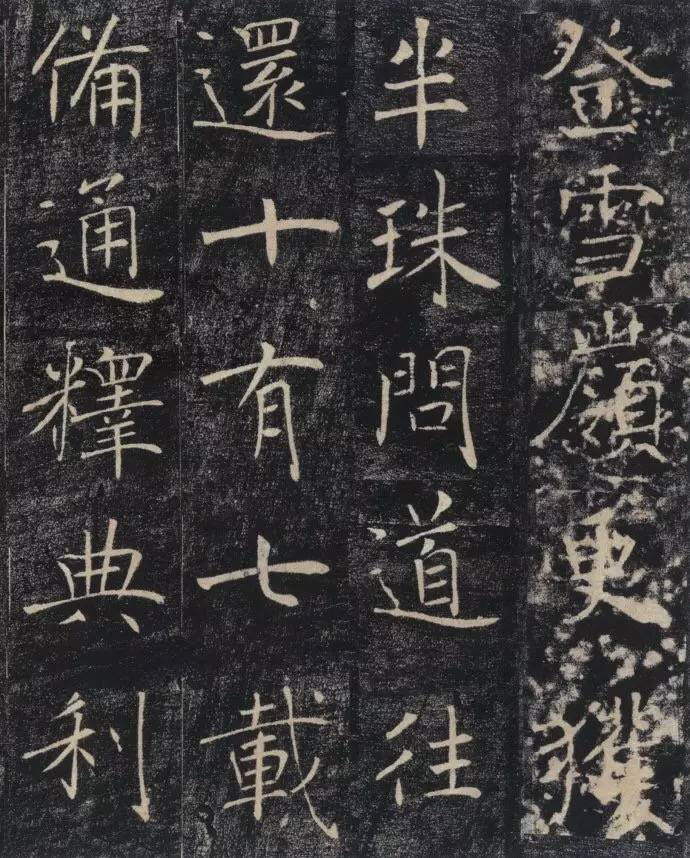 登雪嶺更獲
半珠問道往
還十有七載
備通釋典利